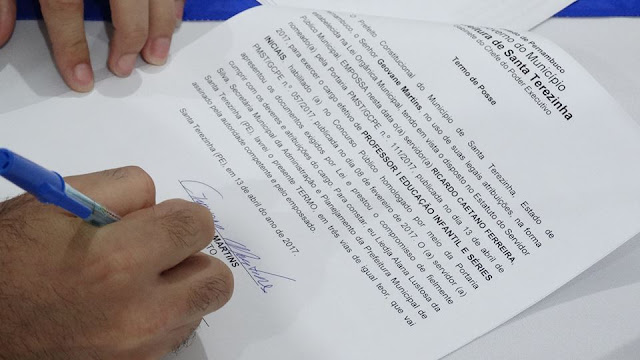 de Pernambuco
verno do Município
itura de Santa Terezinha
binete do Chefe do Poder Executivo
Termo de Posse
O Prefeito Constitucional do Município de Santa Terezinha, Estado de
Pernambuco, o Senhor Geovane Martins, no uso de suas legais atribuições, na forma
estabelecida na Lei Orgânica Municipal, tendo em vista o disposto no Estatuto do Servidor
Público Municipal, EMPOSSA nesta data o/a) servidor(a) RICARDO CAETANO FERREIRA,
nomeado(a) pela Portaria PMST/GCPE n.º 111/2017, publicada no dia 13 de abril de
2017, para exercer o cargo efetivo de PROFESSOR I EDUCAÇÃO INFANTIL E SÉRIES
INICIAIS, habilitado (a) no Concurso Público homologado por meio da Portaria
PMST/GCPE n.º 057/2017, publicada no dia 08 de fevereiro de 2017. O (a) servidor (a)
apresentou os documentos exigidos por Lei e prestou o compromisso de fielmente
cumprir com os deveres e atribuições do cargo. Para constar, eu Liedja Alana Lustosa da
Silva, Secretária Municipal da Administração e Planejamento da Prefeitura Municipal de
Santa Terezinha (PE), lavrei o presente TERMO, em três vias de igual teor, que vai
assinado pela autoridade competente e pelo empossado.
Santa Terezinha (PE), em 13 de abril do ano de 2017.
MARTINS